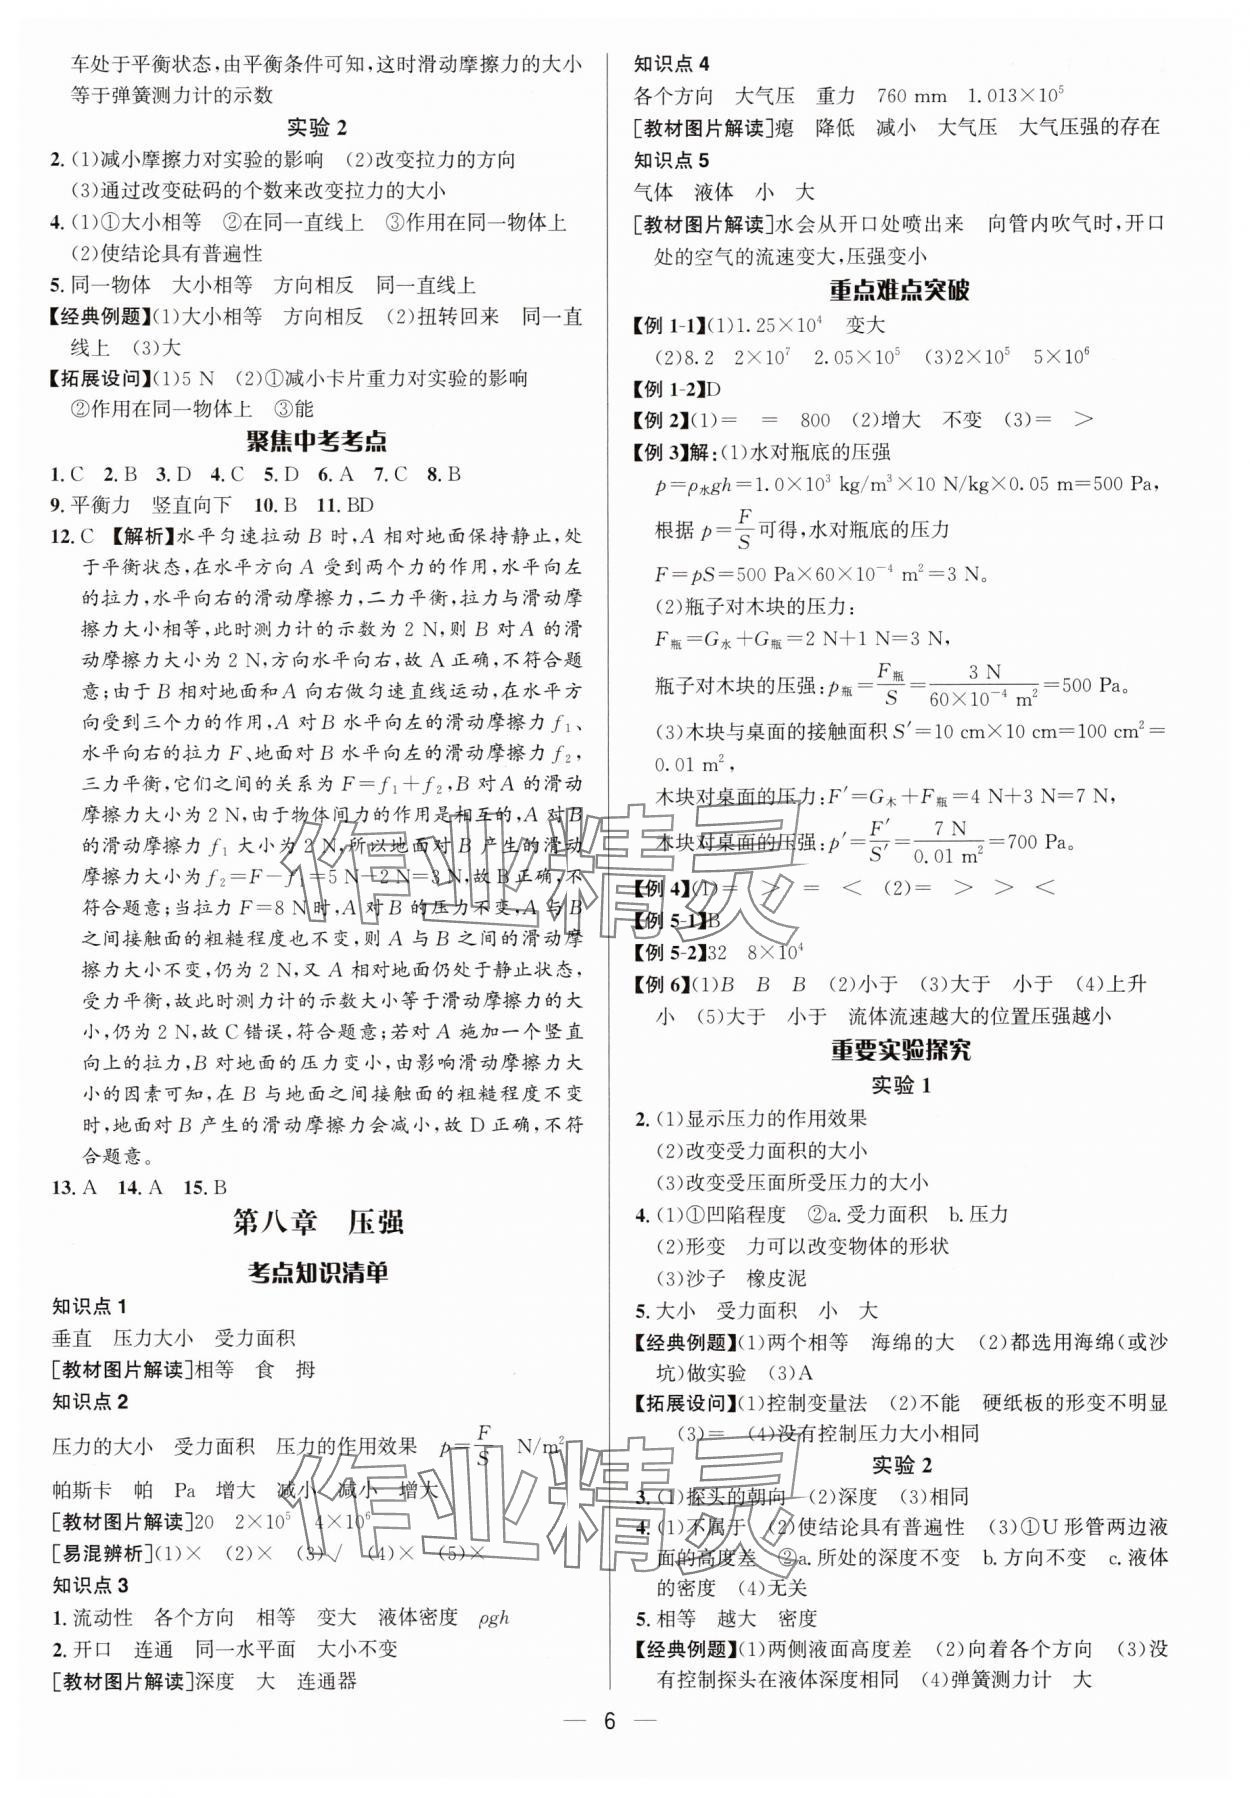 车处于平衡状态,由平衡条件可知,这时滑动摩擦力的大小
等于弹簧测力计的示数
实验2
2. (1)减小摩擦力对实验的影响 (2)改变拉力的方向
(3)通过改变砝码的个数来改变拉力的大小
4. (1)①大小相等 ②在同一直线上 ③作用在同一物体上
(2)使结论具有普遍性
5. 同一物体 大小相等 方向相反 同一直线上
【经典例题】(1)大小相等 方向相反 (2)扭转回来 同一直
线上 (3)大
【拓展设问】(1)5 N (2)①减小卡片重力对实验的影响
②作用在同一物体上 ③能
聚焦中考考点
1. C 2. B 3. D 4. C 5. D 6. A 7. C 8. B
9. 平衡力 竖直向下 10. B 11. BD
12. C 【解析】水平匀速拉动 B 时,A 相对地面保持静止,处
于平衡状态,在水平方向 A 受到两个力的作用,水平向左
的拉力,水平向右的滑动摩擦力,二力平衡,拉力与滑动摩
擦力大小相等,此时测力计的示数为 2 N,则 B 对 A 的滑
动摩擦力大小为 2 N,方向水平向右,故 A 正确,不符合题
意;由于 B 相对地面和 A 向右做匀速直线运动,在水平方
向受到三个力的作用,A 对 B 水平向左的滑动摩擦力 f₁、
水平向右的拉力 F、地面对 B 水平向左的滑动摩擦力 f₂,
三力平衡,它们之间的关系为 F=f₁+f₂,B 对 A 的滑动摩
擦力大小为 2 N,由于物体间力的作用是相互的,A 对 B
的滑动摩擦力 f₁ 大小为 2 N,所以地面对 B 产生的滑动
摩擦力大小为 f₂=F-f₁=5 N-2 N=3 N,故 B 正确,不
符合题意;当拉力 F=8 N 时,A 对 B 的压力不变,A 与 B
之间接触面的粗糙程度也不变,则 A 与 B 之间的滑动摩
擦力大小不变,仍为 2 N,又 A 相对地面仍处于静止状态,
受力平衡,故此时测力计的示数大小等于滑动摩擦力的大
小,仍为 2 N,故 C 错误,符合题意;若对 A 施加一个竖直
向上的拉力,B 对地面的压力变小,由影响滑动摩擦力大
小的因素可知,在 B 与地面之间接触面的粗糙程度不变
时,地面对 B 产生的滑动摩擦力会减小,故 D 正确,不符
合题意。
13. A 14. A 15. B
第八章 压强
考点知识清单
知识点1
垂直 压力大小 受力面积
[教材图片解读]相等 食 拇
知识点2
压力的大小 受力面积 压力的作用效果 p=F/S N/m²
帕斯卡 帕 Pa 增大 减小 减小 增大
[教材图片解读]20 2×10⁵ 4×10⁶
[易混辨析](1)× (2)× (3)√ (4)× (5)×
知识点3
1. 流动性 各个方向 相等 变大 液体密度 ρgh
2. 开口 连通 同一水平面 大小不变
[教材图片解读]深度 大 连通器
知识点4
各个方向 大气压 重力 760 mm 1.013×10⁵
[教材图片解读]瘪 降低 减小 大气压 大气压强的存在
知识点5
气体 液体 小 大
[教材图片解读]水会从开口处喷出来 向管内吹气时,开口
处的空气的流速变大,压强变小
重点难点突破
【例 1-1】(1)1.25×10⁴ 变大
(2)8.2 2×10⁷ 2.05×10⁵ (3)2×10⁵ 5×10⁶
【例 1-2】D
【例 2】(1)= = 800 (2)增大 不变 (3)= >
【例 3】解:(1)水对瓶底的压强
p=ρ水gh=1.0×10³ kg/m³×10 N/kg×0.05 m=500 Pa,
根据 p=F/S可得,水对瓶底的压力
F=pS=500 Pa×60×10⁻⁴ m²=3 N。
(2)瓶子对木块的压力:
F瓶=G水+G瓶=2 N+1 N=3 N,
瓶子对木块的压强:p瓶=F瓶/S=3 N/60×10⁻⁴ m²=500 Pa。
(3)木块与桌面的接触面积 S′=10 cm×10 cm=100 cm²=
0.01 m²,
木块对桌面的压力:F′=G木+F瓶=4 N+3 N=7 N,
木块对桌面的压强:p′=F′/S′=7 N/0.01 m²=700 Pa。
【例 4】(1)= > = < (2)= > > <
【例 5-1】B
【例 5-2】32 8×10⁴
【例 6】(1)B B B (2)小于 (3)大于 小于 (4)上升
小 (5)大于 小于 流体流速越大的位置压强越小
重要实验探究
实验1
2. (1)显示压力的作用效果
(2)改变受力面积的大小
(3)改变受压面所受压力的大小
4. (1)①凹陷程度 ②a. 受力面积 b. 压力
(2)形变 力可以改变物体的形状
(3)沙子 橡皮泥
5. 大小 受力面积 小 大
【经典例题】(1)两个相等 海绵的大 (2)都选用海绵(或沙
坑)做实验 (3)A
【拓展设问】(1)控制变量法 (2)不能 硬纸板的形变不明显
(3)= (4)没有控制压力大小相同
实验2
3. (1)探头的朝向 (2)深度 (3)相同
4. (1)不属于 (2)使结论具有普遍性 (3)①U 形管两边液
面的高度差 ②a. 所处的深度不变 b. 方向不变 c. 液体
的密度 (4)无关
5. 相等 越大 密度
【经典例题】(1)两侧液面高度差 (2)向着各个方向 (3)没
有控制探头在液体深度相同 (4)弹簧测力计 大
作业精灵
作业精灵
— 6 —